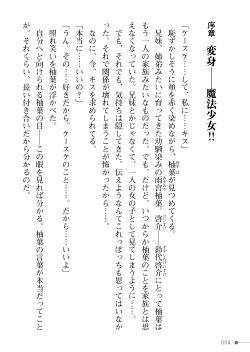 序章　変身――魔法少女!!
「ケースケ……して、私に……キス」
恥ずかしそうに頬を赤く染めながら、柚葉が見つめてくる。
兄妹、姉弟みたいに育ってきた幼馴染みの雨宮柚葉。啓介――鈴代啓介にとって柚葉は
もう一人の家族みたいなものだった。でも、だけど、いつからか柚葉のことを家族とは思
えなくなっていた。兄妹とかじゃなくて、一人の女の子として見てしまうように……。
でも、それでも、気持ちは隠してきた。伝えようなんてこれっぽっちも思ってはいなか
った。今の関係が壊れてしまうことが怖かったから……。
なのに、今、キスを求められてる。
「本当に……いいの?」
「うん。その……好きだから。ケースケのこと……。だから……いいよ」
照れ笑いを柚葉が浮かべた。
自分へと向けられる柚葉の目――この眼を見れば分かる。柚葉の言葉が本当だってこと
が。それくらい、長い付き合いだから分かるのだ。
004